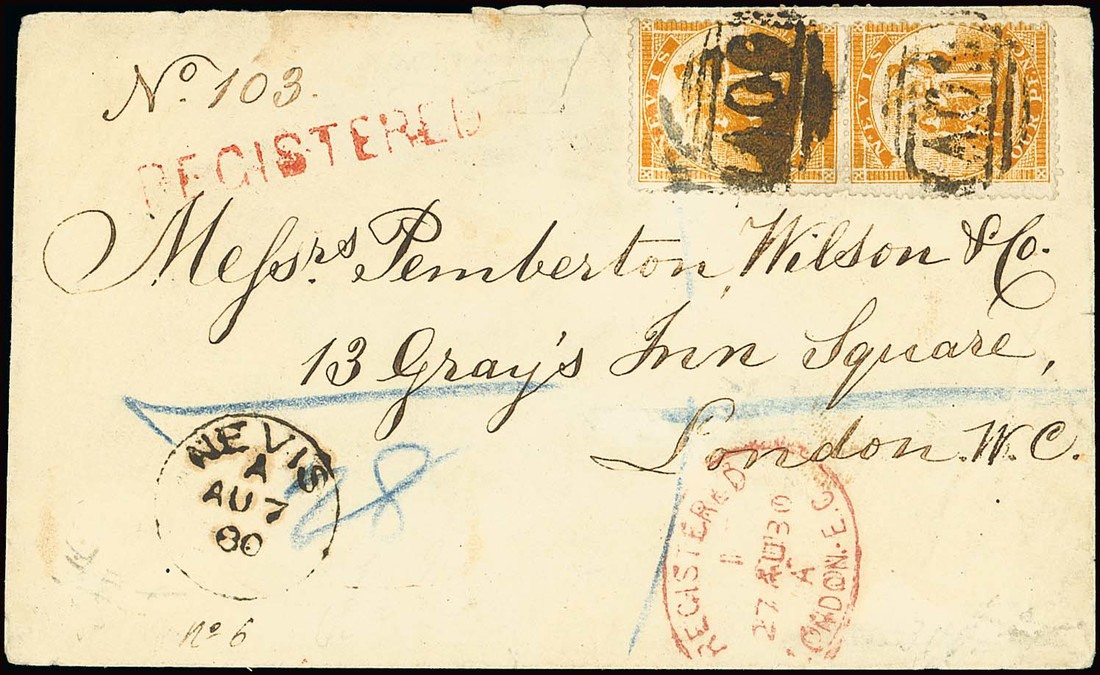 No. 103.
REGISTERED
NEVIS
A09
NEVIS
A09
Messrs Pemberton, Wilson & Co.
13 Gray's Inn Square,
London. W.C.
NEVIS
A
AU 7
80
28
REGISTERED
11
27 AU 80
A
LONDON. E.C.
No 6